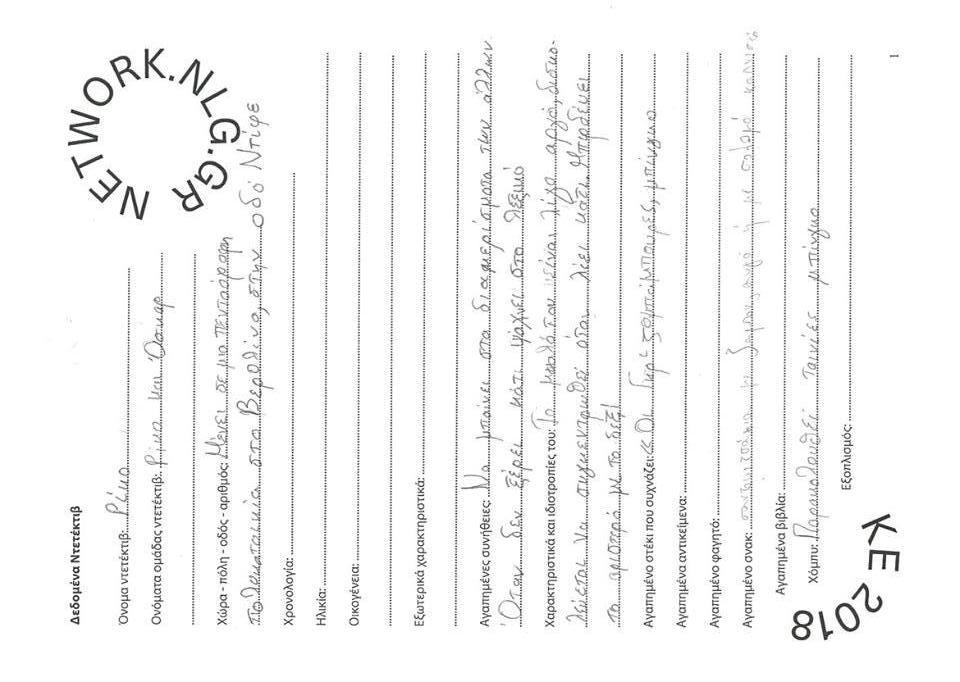 NETWORK.NLG.GR
Δεδομένα Ντετέκτιβ
Όνομα ντετέκτιβ: Ρίκο
Ονόματα ομάδας ντετέκτιβ: Ρίκο και Όσκαρ
Χώρα - πόλη - οδός - αριθμός: Μένει σε μια πενταόροφη
πολυκατοικία στο Βερολίνο, στην οδό Ντίφε
Χρονολογία:
Ηλικία:
Οικογένεια:
Εξωτερικά χαρακτηριστικά:
Αγαπημένες συνήθειες: Να μπαίνει στα διαμερίσματα των άλλων.
Όταν δεν ξέρει κάτι ψάχνει στο λεξικό
Χαρακτηριστικά και ιδιοτροπίες του: Το μυαλό του είναι λίγο αργό, δυσκο-
λεύεται να συγκεντρωθεί όταν λέει κάτι. Μπερδεύει
το αριστερό με το δεξί
Αγαπημένο στέκι που συχνάζει: «Οι Γκρι μπίνγκο
Αγαπημένα αντικείμενα:
Αγαπημένο φαγητό:
Αγαπημένο σνακ: με αυγό ή με σολομό καπνιστό
Αγαπημένα βιβλία:
Χόμπυ: Παρακολουθεί ταινίες μπίνγκο
Εξοπλισμός:
KE 2018
1